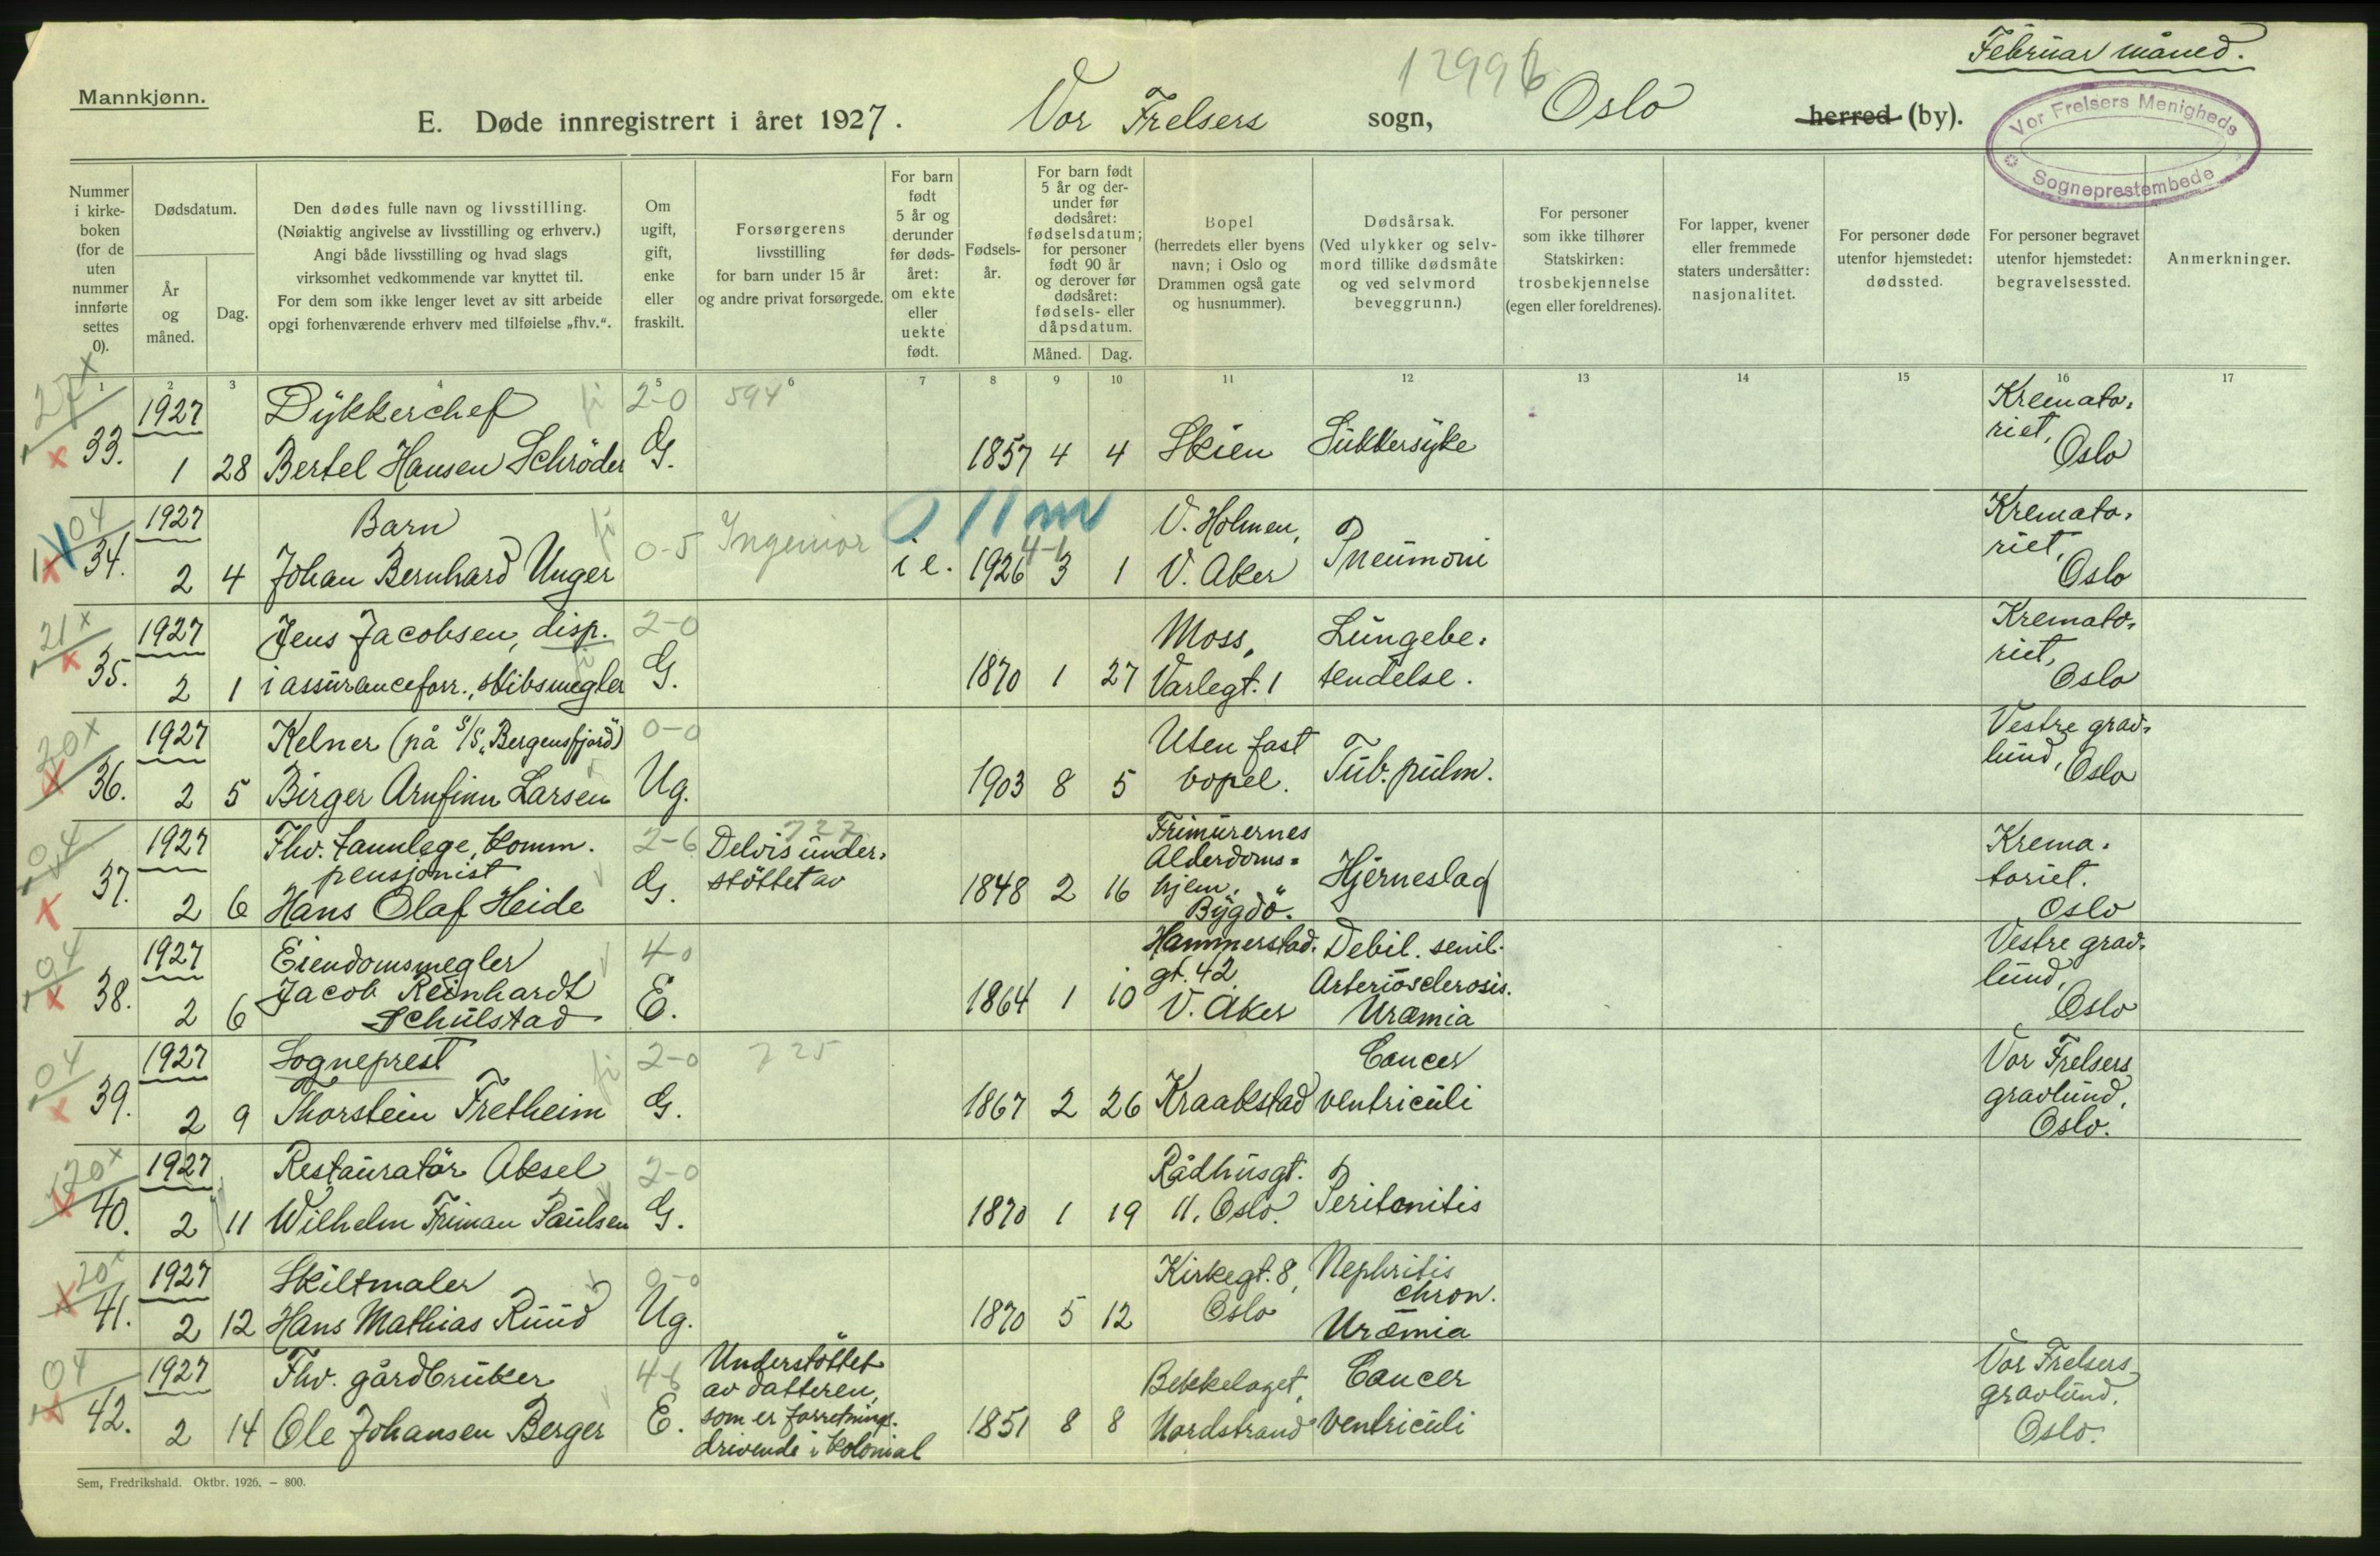 Februar måned.
12996
Mannkjønn.
E. Døde innregistrert i året 1927. Vor Frelsers sogn, Oslo herred (by).
Vor Frelsers Menigheds Sogneprestembede
Nummer i kirkeboken (for de uten nummer innførte settes 0).
Dødsdatum.
År og måned.
Dag.
Den dødes fulle navn og livsstilling.
(Nøiaktig angivelse av livsstilling og erhverv.)
Angi både livsstilling og hvad slags
virksomhet vedkommende var knyttet til.
For dem som ikke lenger levet av sitt arbeide
opgi forhenværende erhverv med tilføielse „fhv.“.
Om ugift, gift, enke eller fraskilt.
Forsørgerens
livsstilling
for barn under 15 år
og andre privat forsørgede.
For barn født 5 år og derunder før dødsåret: om ekte eller uekte født.
Fødselsår.
For barn født 5 år og derunder før dødsåret: fødselsdatum; for personer født 90 år og derover før dødsåret: fødsels- eller dåpsdatum.
Måned.
Dag.
Bopel
(herredets eller byens
navn; i Oslo og
Drammen også gate
og husnummer).
Dødsårsak.
(Ved ulykker og selvmord tillike dødsmåte
og ved selvmord
beveggrunn.)
For personer
som ikke tilhører
Statskirken:
trosbekjennelse
(egen eller foreldrenes).
For lapper, kvener
eller fremmede
staters undersåtter:
nasjonalitet.
For personer døde
utenfor hjemstedet:
dødssted.
For personer begravet
utenfor hjemstedet:
begravelsessted.
Anmerkninger.
1 2 3 4 5 6 7 8 9 10 11 12 13 14 15 16 17
33. 1927 1 28 Dykkerchef
Bertel Hansen Schrøder 2-0 G. 594 1857 4 4 Skien Sukkersyke Krematoriet, Oslo
04 34. 1927 2 4 Barn
Johan Bernhard Unger 0-5 Ingeniør i e. 0 11 m 1926 4-1 3 1 V. Holmen, V. Aker Pneumoni Krematoriet, Oslo
21 x 35. 1927 2 1 Jens Jacobsen, disp.
i assuranceforr., skibsmegler 2-0 G. 1870 1 27 Moss, Varlegt. 1 Lungebetendelse. Krematoriet, Oslo
20 x 36. 1927 2 5 Kelner (på S/S „Bergensfjord“)
Birger Arnfinn Larsen 0-0 Ug. 1903 8 5 Uten fast bopel. Tub. pulm. Vestre gravlund, Oslo
04 37. 1927 2 6 Fhv. tannlege, komm.
pensjonist
Hans Olaf Heide 2-6 G. Delvis understöttet av 1848 2 16 Frimurernes Alderdomshjem, Bygdö. Hjerneslag Krematoriet. Oslo
04 38. 1927 2 6 Eiendomsmegler
Jacob Reinhardt
Schulstad 4-0 E. 1864 1 10 Hammerstad. gt. 42 V. Aker Debil. senil. Arteriosclerosis. Uræmia Vestre gravlund, Oslo
04 39. 1927 2 9 Sogneprest
Thorstein Fretheim 2-0 G. 725 1867 2 26 Kraakstad Cancer ventriculi Vor Frelsers gravlund, Oslo.
20 x 40. 1927 2 11 Restauratör Aksel
Wilhelm Friman Paulsen 2-0 G. 1870 1 19 Rådhusgt. 11, Oslo. Peritonitis
20 x 41. 1927 2 12 Skiltmaler
Hans Mathias Ruud 0-0 Ug. 1870 5 12 Kirkegt. 8, Oslo Nephritis chron. Uræmia
04 42. 1927 2 14 Fhv. gårdbruker
Ole Johansen Berger 4-6 E. Understöttet av datteren, som er forretningsdrivende i kolonial 1851 8 8 Bekkelaget, Nordstrand Cancer ventriculi Vor Frelsers gravlund. Oslo.
Sem, Fredrikshald. Oktbr. 1926. – 800.